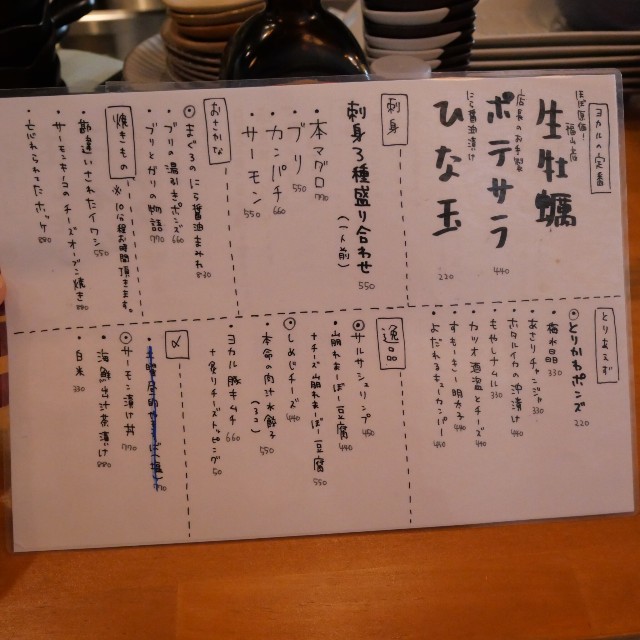 ヨカルの定番
ほぼ原価!
福山店
生牡蠣
店長のお手製
ポテサラ
440
にら醤油漬け
ひな玉
220
刺身
刺身3種盛り合わせ
(一人前)
550
・本マグロ
770
・ブリ
550
・カンパチ
660
・サーモン
550
おさかな
まぐろのにら醤油まみれ
830
・ブリの湯引きポンズ
660
・ブリとガリの物語
770
焼きもの
※10分程お時間頂きます。
・勘違いされたイワシ
550
・サーモンキーヨのチーズオーブン焼き
880
・忘れられてたホッケ
880
とりあえず
とりかわポンズ
220
・梅水晶
330
・あさりチャンジャ
330
・ホタルイカの沖漬け
440
・もやしナムル
330
・カツオ酒盗とチーズ
440
・すもーきー明太子
440
・よだれるキューカンバー
450
逸品
サルサシュリンプ
450
・山崩れまーぼー豆腐
440
+チーズ山崩れまーぼー豆腐
550
しめじチーズ
440
・本命の肉汁水餃子
(5コ)
550
・ヨカル豚キムチ
660
+炙りチーズトッピング
50
〆
サーモン漬け丼
770
・海鮮出汁茶漬け
880
・白米
330